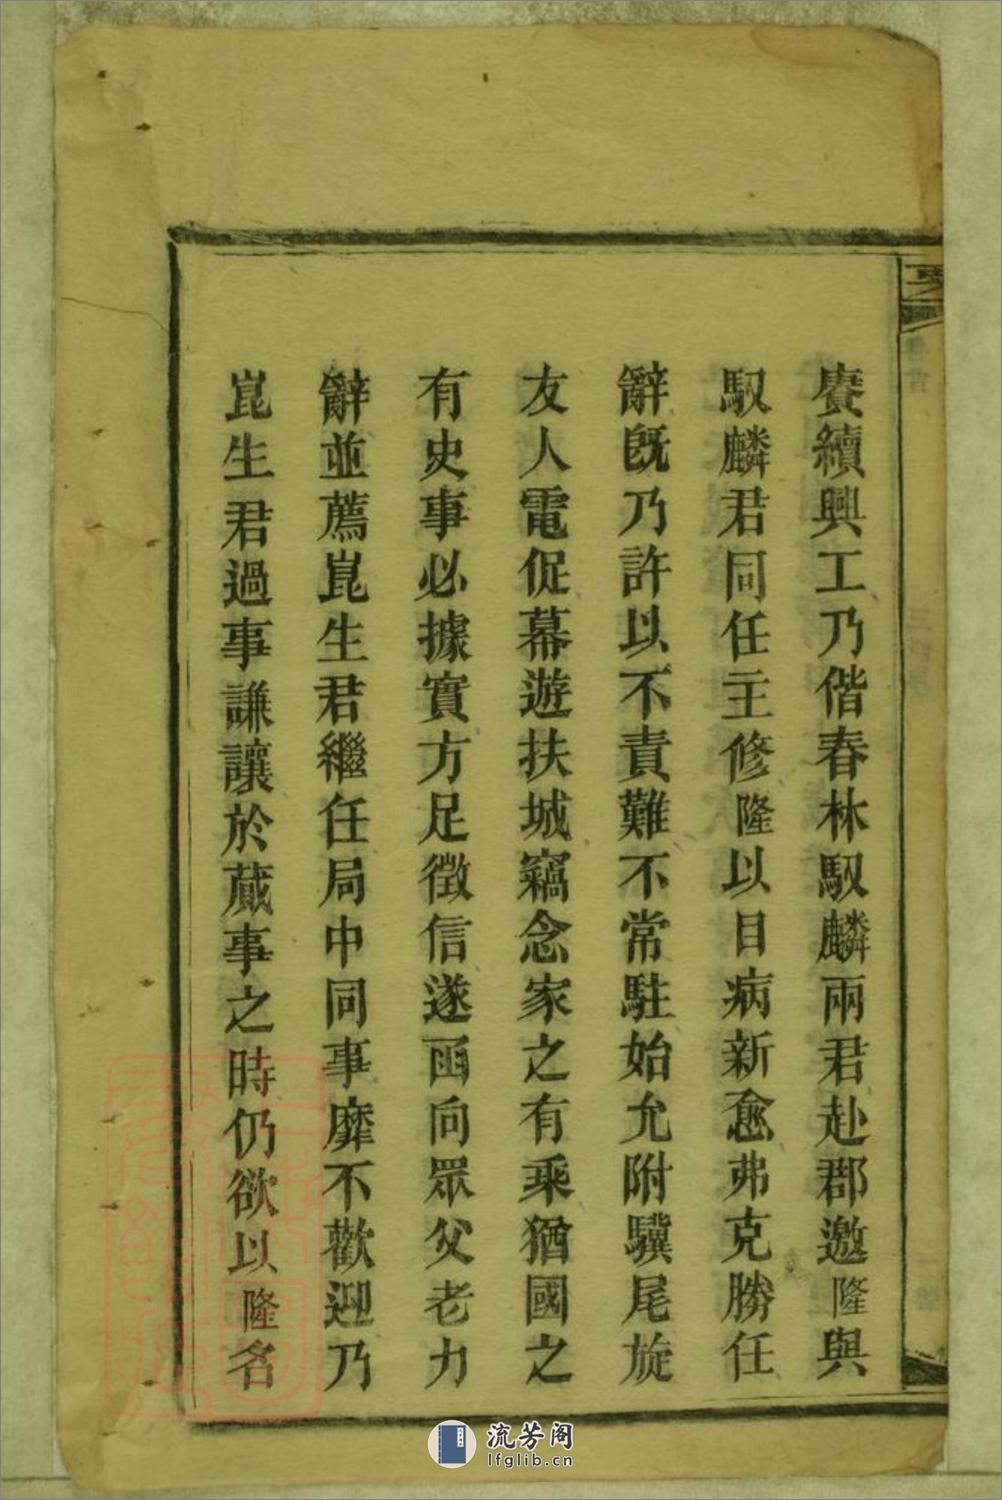 賡續興工乃偕春林馭麟兩君赴郡邀隆與
馭麟君同任主修隆以目病新愈弗克勝任
辭旣乃許以不責難不常駐始允附驥尾旋
友人電促幕遊扶城竊念家之有乘猶國之
有史事必據實方足徵信遂函向眾父老力
辭並薦崑生君繼任局中同事靡不歡迎乃
崑生君過事謙讓於蕆事之時仍欲以隆名
流芳阁
lfglib.cn